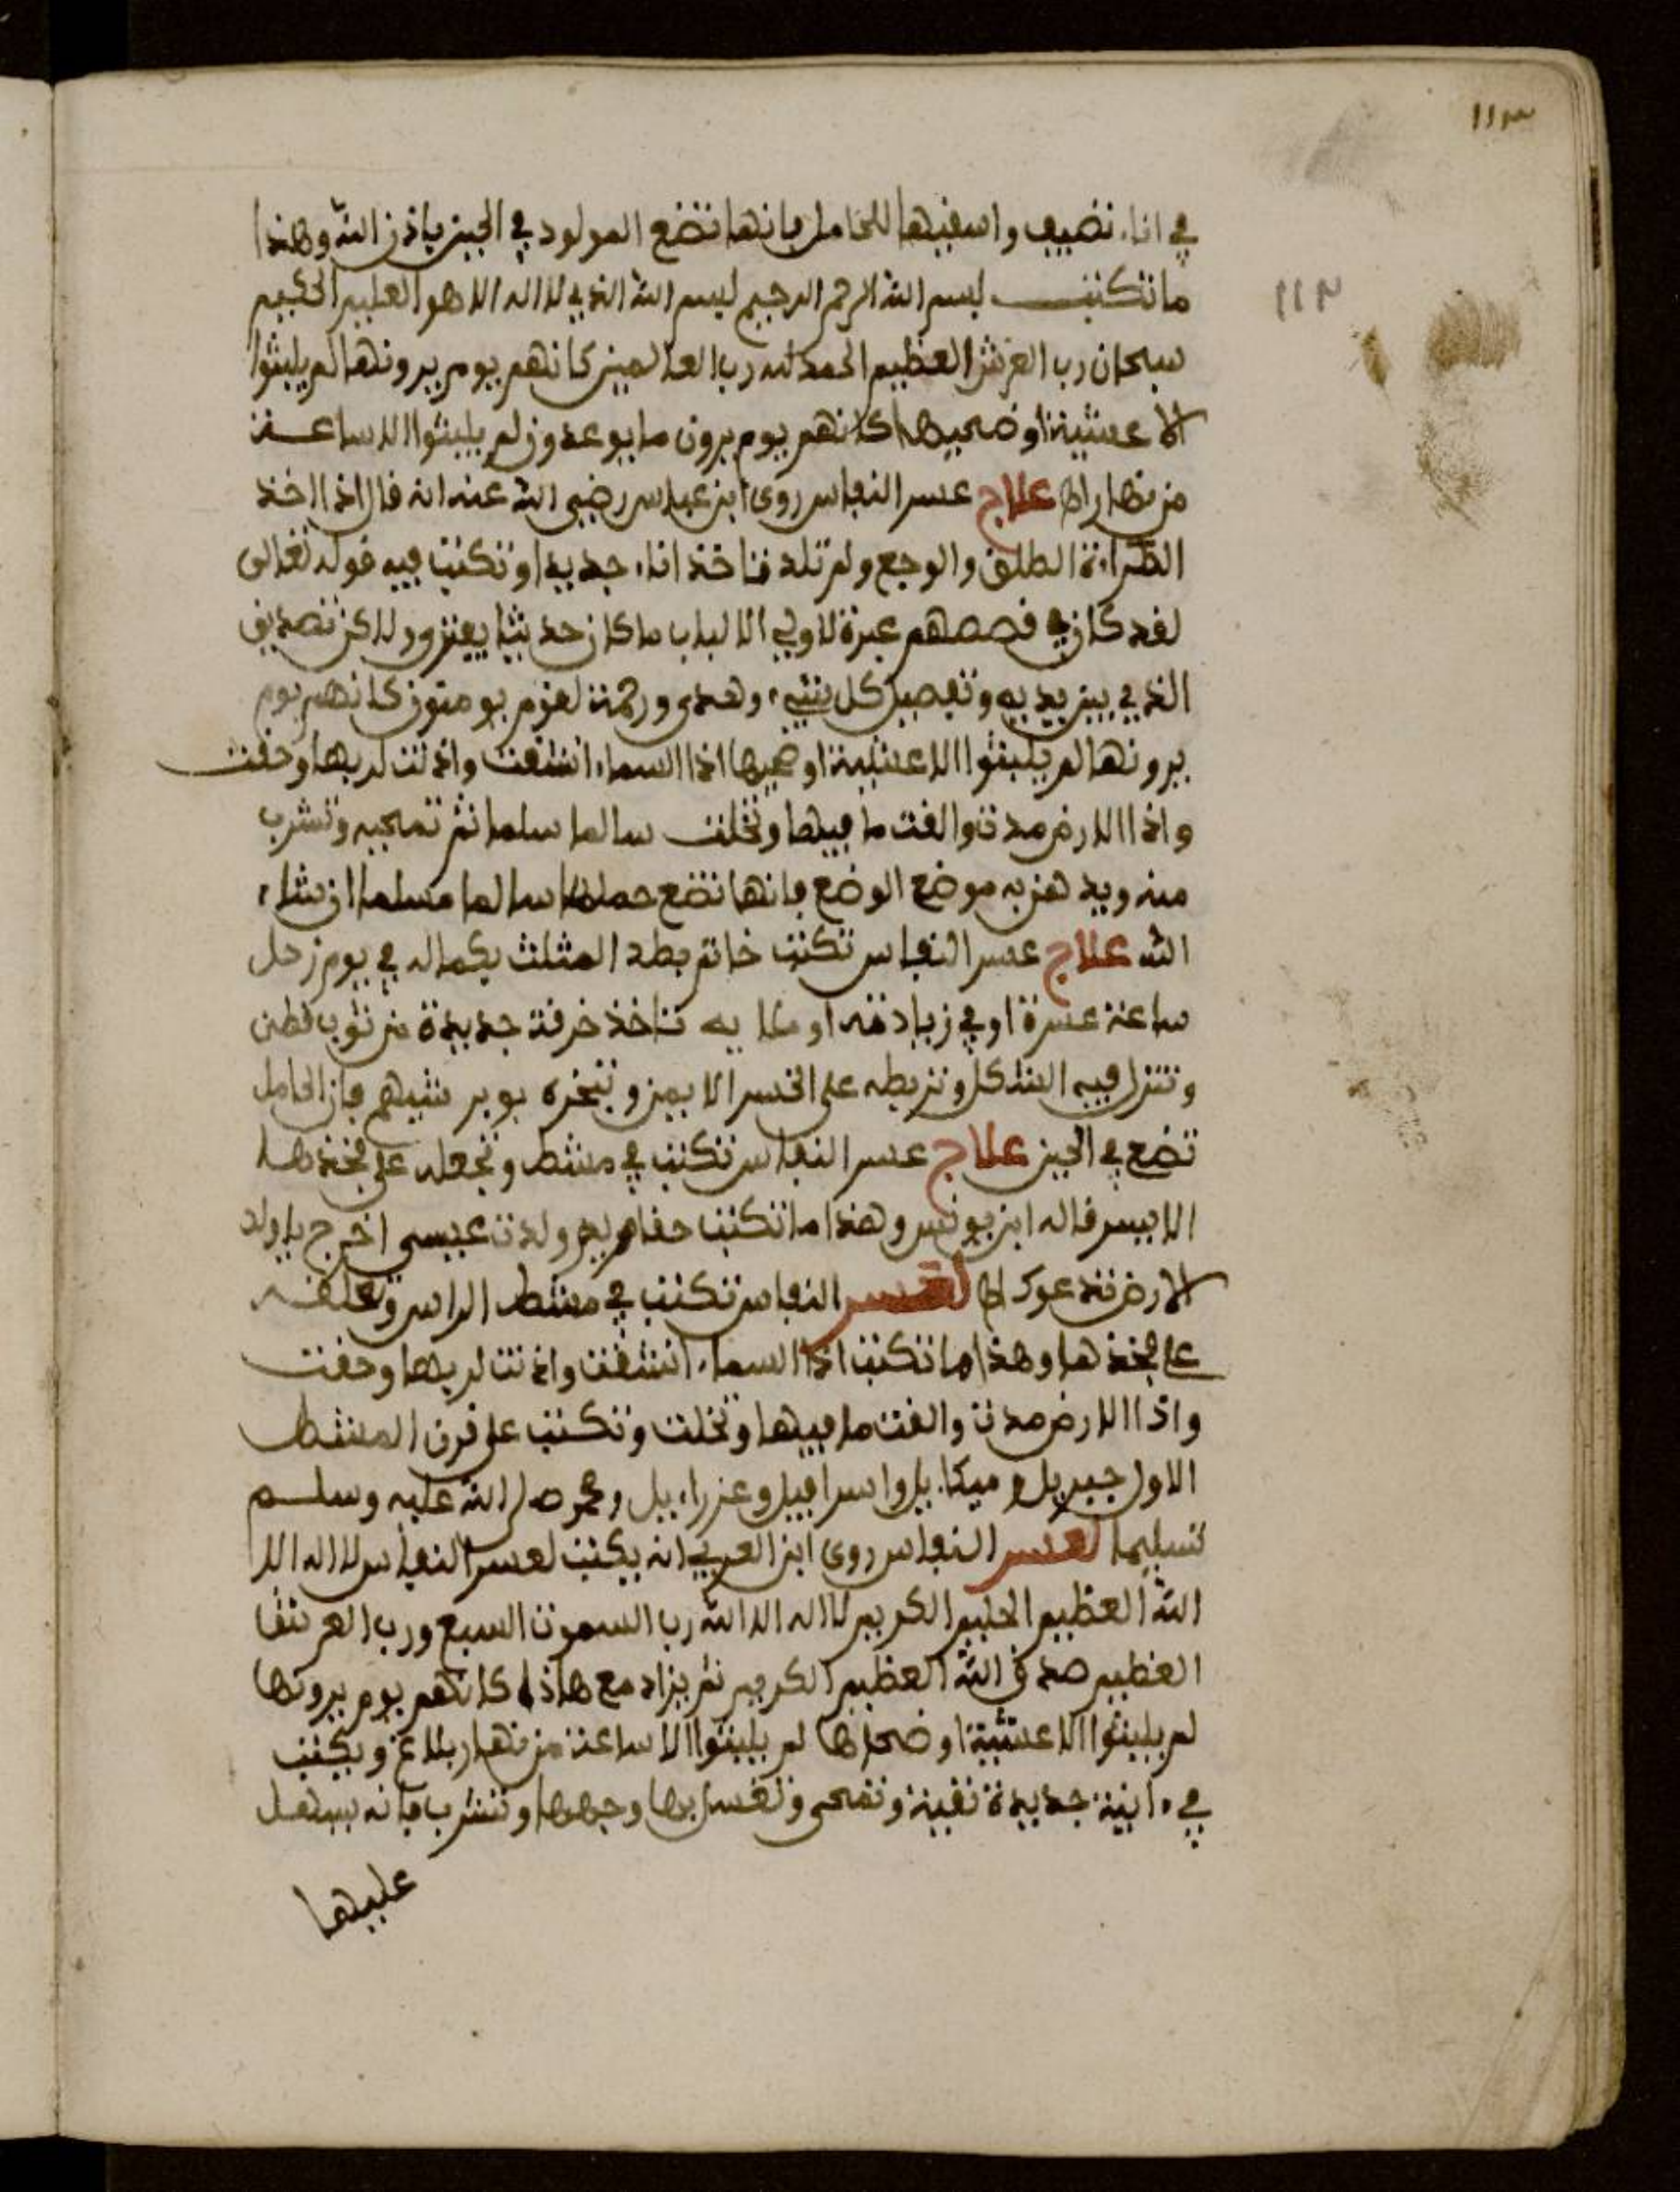 ١١٣
١١٣
في اناء نضيف واسقيها للحامل فانها تضع المولود في الحين باذن الله وهذا
ما تكتب بسم الله الرحمن الرحيم بسم الله الذي لا اله الا هو العليم الحكيم
سبحان رب العرش العظيم الحمد لله رب العالمين كانهم يوم يرونها لم يلبثوا
الا عشية او ضحيها كانهم يوم يرون ما يوعدون لم يلبثوا الا ساعة
من نهار علاج عسر النفاس روى ابن عباس رضي الله عنه انه قال اذا اخذ
المراة الطلق والوجع ولم تلد تاخذ اناء جديدا وتكتب فيه قوله تعالى
لقد كان في قصصهم عبرة لاولي الالباب ما كان حديثا يفترى ولاكن تصديق
الذي بين يديه وتفصيل كل شيء وهدى ورحمة لقوم يومنون كانهم يوم
يرونها لم يلبثوا الا عشية او ضحيها اذا السماء انشقت واذنت لربها وحقت
واذا الارض مدت والقت ما فيها وتخلت سالما سلما ثم تمحيه وتشرب
منه ويدهن به موضع الوضع فانها تضع حملها سالما مسلما ان شاء
الله علاج عسر النفاس تكتب خاتم بطد المثلث بكماله في يوم زحل
ساعة عشرة او في زيادته تاخذ خرقة جديدة من ثوب قطن
وتنزل فيه الشكل وتربطه على الايمن وتبخره بوبر فان الحامل
تضع في الحين علاج عسر النفاس تكتب في مشط وتجعله على فخذها
الايسر قاله ابن يونس وهذا ما تكتب مريم ولدت عيسى اخرج يا ولد
الارض تدعوك لعسر النفاس تكتب في مشط الراس وتعلقه
على فخذها وهذا ما تكتب اذا السماء انشقت واذنت لربها وحقت
واذا الارض مدت والقت ما فيها وتخلت وتكتب على قرن المشط
الاول جبريل وميكايل واسرافيل وعزراءيل ومحمد صلى الله عليه وسلم
تسليما لعسر النفاس روى ابن العربي انه يكتب لعسر النفاس لا اله الا
الله العظيم الحليم الكريم لا اله الا الله رب السموت السبع ورب العرش
العظيم صدق الله العظيم الكريم ثم يزاد مع هاذا كانهم يوم يرونها
لم يلبثوا الا عشية او ضحاها لم يلبثوا الا ساعة من نهار بلاغ ويكتب
في ءانية جديدة نقية وتمحى وتغسل بها وجهها وتشرب فانه يسهل
عليها